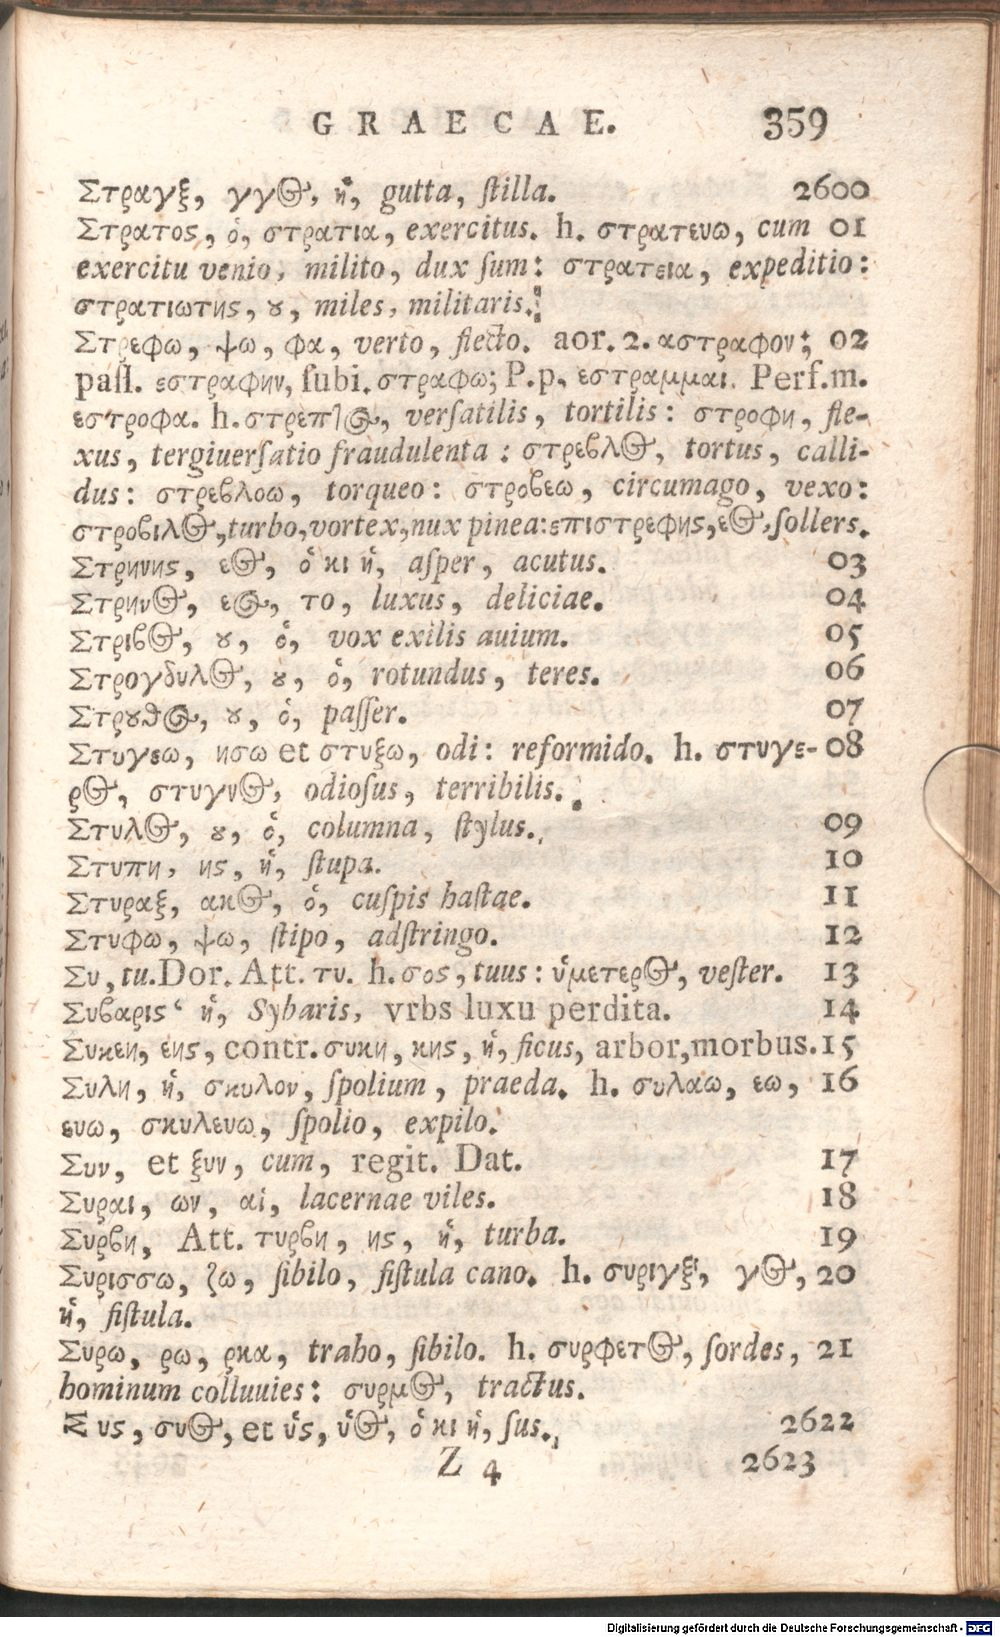 GRAECAE. 359
Στραγξ, γγος, ἡ, gutta, ſtilla. 2600
Στρατος, ὁ, στρατια, exercitus. h. στρατευω, cum 01
exercitu venio, milito, dux ſum: στρατεια, expeditio:
στρατιωτης, ȣ, miles, militaris.
Στρεφω, ψω, φα, verto, flecto. aor. 2. αστραφον; 02
paſſ. εστραφην, ſubi. στραφω; P. p. εστραμμαι. Perf. m.
εστροφα. h. στρεπτος, verſatilis, tortilis: στροφη, fle-
xus, tergiuerſatio fraudulenta: στρεβλος, tortus, calli-
dus: στρεβλοω, torqueo: στροβεω, circumago, vexo:
στροβιλος, turbo, vortex, nux pinea: επιστρεφης, εος, ſollers.
Στρηνης, εος, ὁ κι ἡ, aſper, acutus. 03
Στρηνος, εος, το, luxus, deliciae. 04
Στριβος, ȣ, ὁ, vox exilis auium. 05
Στρογδυλος, ȣ, ὁ, rotundus, teres. 06
Στρȣθος, ȣ, ὁ, paſſer. 07
Στυγεω, ησω et στυξω, odi: reformido. h. στυγε- 08
ρος, στυγνος, odioſus, terribilis.
Στυλος, ȣ, ὁ, columna, ſtylus. 09
Στυπη, ης, ἡ, ſtupa. 10
Στυραξ, ακος, ὁ, cuſpis haſtae. 11
Στυφω, ψω, ſtipo, adſtringo. 12
Συ, tu. Dor. Att. τυ. h. σος, tuus: ὑμετερος, veſter. 13
Συβαρις ἡ, Sybaris, vrbs luxu perdita. 14
Συκεη, εης, contr. συκη, κης, ἡ, ficus, arbor, morbus. 15
Συλη, ἡ, σκυλον, ſpolium, praeda. h. συλαω, εω, 16
ευω, σκυλευω, ſpolio, expilo.
Συν, et ξυν, cum, regit. Dat. 17
Συραι, ων, αἱ, lacernae viles. 18
Συρβη, Att. τυρβη, ης, ἡ, turba. 19
Συρισσω, ζω, ſibilo, fiſtula cano. h. συριγξ, γος, 20
ἡ, fiſtula.
Συρω, ρω, ρκα, traho, ſibilo. h. συρφετος, ſordes, 21
hominum colluuies: συρμος, tractus.
Συς, συος, et ὑς, ὑος, ὁ κι ἡ, ſus. 2622
Z 4 2623
Digitalisierung gefördert durch die Deutsche Forschungsgemeinschaft - DFG